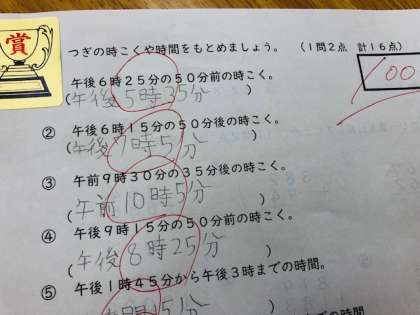 賞
つぎの時こくや時間をもとめましょう。 (1問2点 計16点)
100
午後6時25分の50分前の時こく。
(午後5時35分)
② 午後6時15分の50分後の時こく。
(午後7時5分)
③ 午前9時30分の35分後の時こく。
(午前10時5分)
④ 午後9時15分の50分前の時こく。
(午後8時25分)
⑤ 午後1時45分から午後3時までの時間。
15分